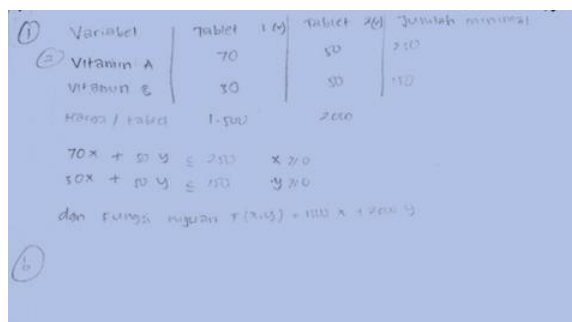 ① Variabel | Tablet 1 (x) | Tablet 2 (y) | Jumlah minimal
ⓐ Vitamin A | 70 | 50 | 250
Vitamin E | 30 | 50 | 150
Harga / tablet 1.500 2000
70x + 50 y ≤ 250 x ≥ 0
30x + 50 y ≤ 150 y ≥ 0
dan fungsi F(x,y) = 1500 x + 2000 y
ⓑ